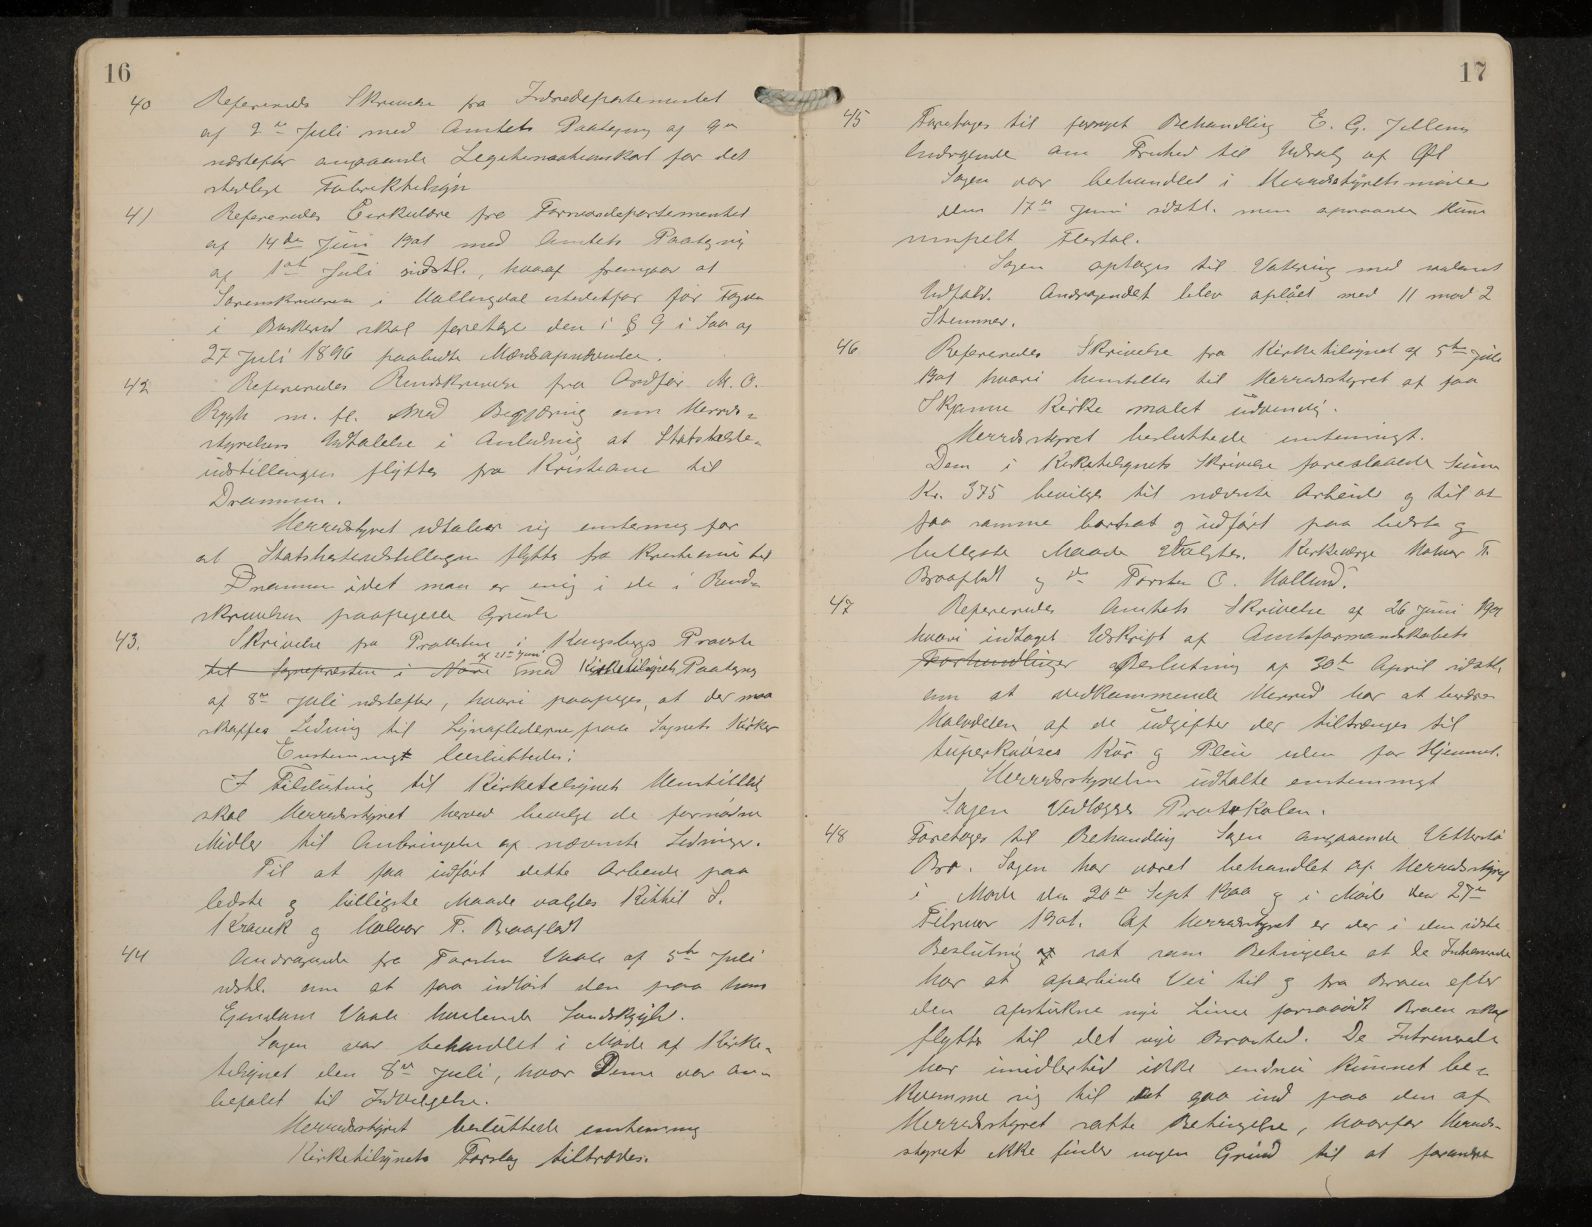 16
40 Refereredes Skrivelse fra Indredepartementet
af 2den Juli med Amtets Paategning af 9de
næstefter angaaende Legitimationskort for det
stedlige Fabriktilsyn
41 Refereredes Cirkulære fra Forsvarsdepartementet
af 14de Juni 1901 med Amtets Paategning
af 1ste Juli sidstl., hvoraf fremgaar at
Sorenskriveren i Hallingdal istedetfor før Fogden
i Buskerud skal foretage den i § 9 i Lov af
27 Juli 1896 paabudte
42 Refereredes Rundskrivelse fra Ordfører M. O.
Rygh m. fl. med Begjæring om Herreds=
styrelsens Udtalelse i Anledning at Statshæste=
udstillingen flyttes fra Kristiania til
Drammen.
Herredsstyret udtaler sig enstemmig for
at Statshesteudstillingen flyttes fra Kristiania til
Drammen idet man er enig i de i Rund=
skrivelsen paapegede Grunde
43. Skrivelse fra Provsten i Kongsbergs Provsti
af 21de Juni
til Sognepresten i Nore med Kirketilsynets Paategning
af 8de Juli næstefter, hvori paapeges, at der maa
skaffes Ledning til Lynaflederne paa Sognets Kirker
Enstemmigt besluttedes:
I Tilslutning til Kirketilsynets Henstilling
skal Herredsstyret herved bevilge de fornødne
Midler til Anbringelse af nævnte Ledninger.
Til at faa udført dette Arbeide paa
bedste og billigste Maade valgtes Kittil S.
Kravik og Halvor T. Braafladt
44 Andragende fra Torsten Vaale af 5te Juli
sidstl. om at faa indløst den paa hans
Eiendom Vaale hvilende Landskyld.
Sagen var behandlet i Møde af Kirke=
tilsynet den 8de Juli, hvor Denne var an=
befalet til Indvilgelse.
Herredsstyret besluttede enstemmig
Kirketilsynets Forslag tiltrædes.
17
45 Foretoges til fornyet Behandling E. G. Jellens
Andragende om Frihed til Udsalg af Øl
Sagen var behandlet i Herredsstyrets møde
den 17de Juni sidstl. men opnaaede kun
simpelt Flertal.
Sagen optages til Votering med saadant
Udfald. Andragendet blev afslået med 11 mod 2
Stemmer.
46 Refereredes Skrivelse fra Kirketilsynet af 5te Juli
1901 hvori henstilles til Herredsstyret at faa
Skjønne Kirke malet udvendig.
Herredsstyret besluttede enstemmigt.
Den i Kirketilsynets Skrivelse foreslaaede Sum
Kr. 375 bevilges til nævnte Arbeide og til at
faa samme bortsat og udført paa bedste og
billigste Maade valgtes. Kirkeværge Halvor T.
Braafladt og do Torsten O. Halland.
47 Refereredes Amtets Skrivelse af 26 Juni 1901
hvori indtaget Udskrift af Amtsformandskabets
Forhandlinger Beslutning af 30te April sidstl.
om at vedkommende Herred har at bære
Halvdelen af de udgifter der tiltrænges til
tuberkuløses Kur og Pleie uden for Hjemmet.
Herredsstyrelsen udtalte enstemmigt
Sagen Vedlægges Protokolen.
48 Foretoges til Behandling Sagen angaaende
Bro. Sagen har været behandlet af Herredsstyret
i Møde den 20de Sept 1900 og i Møde den 27de
Februar 1901. Af Herredsstyret er der i den sidste
Beslutning sat som Betingelse at de Interesserede
har at oparbeide Vei til og fra Broen efter
den opstukne nye Linie forsaavidt Broen skal
flyttes til det nye Brosted. De Interesserede
har imidlertid ikke endnu kunnet be=
kvemme sig til at gaa ind paa den af
Herredsstyret satte Betingelse, hvorfor Herreds=
styret ikke finder nogen Grund til at forandre